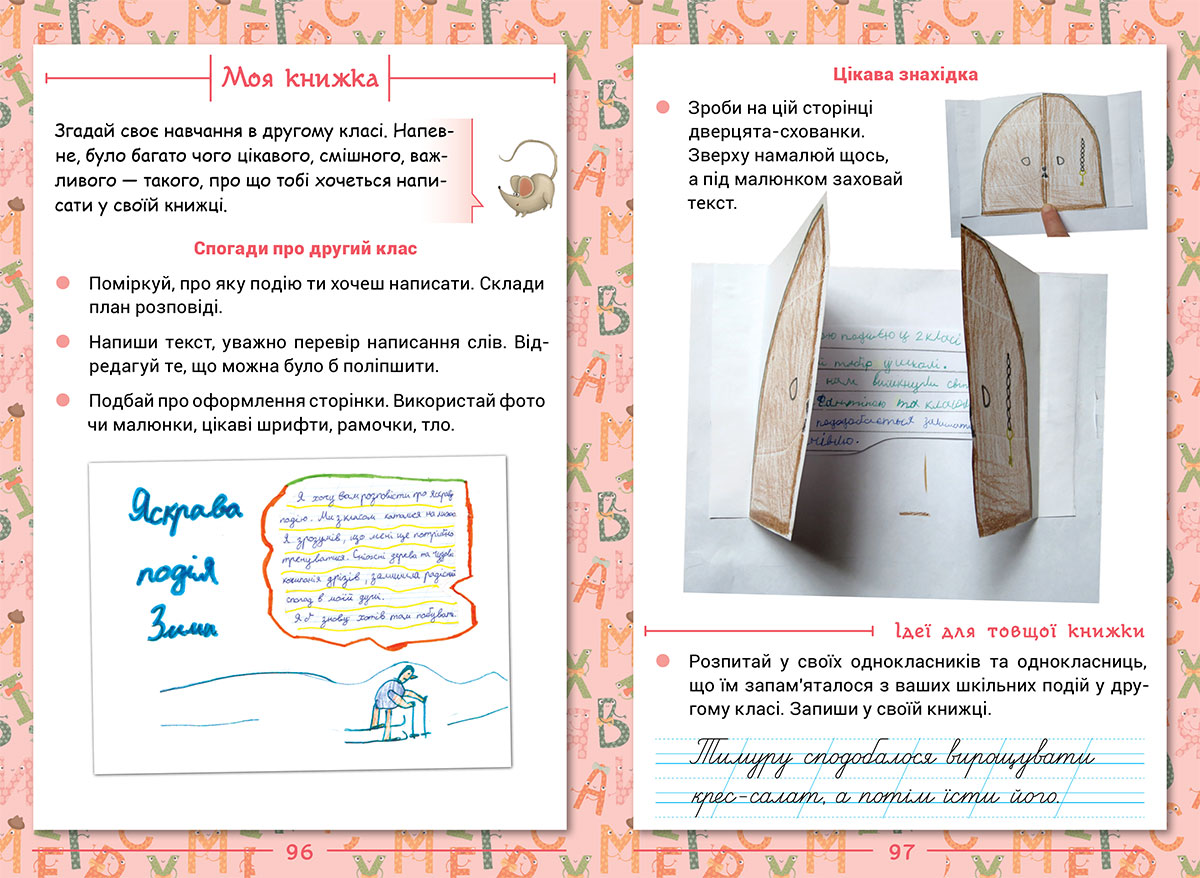 Моя книжка
Згадай своє навчання в другому класі. Напев-
не, було багато чого цікавого, смішного, важ-
ливого — такого, про що тобі хочеться напи-
сати у своїй книжці.
Спогади про другий клас
Поміркуй, про яку подію ти хочеш написати. Склади
план розповіді.
Напиши текст, уважно перевір написання слів. Від-
редагуй те, що можна було б поліпшити.
Подбай про оформлення сторінки. Використай фото
чи малюнки, цікаві шрифти, рамочки, тло.
Яскрава
подія
Зима
Я хочу вам розповісти про яскраву
подію. Ми з класом катался на лижах
Я зрозумів, що мені ще потрібно
тренуватися. Снісасні дерева та чудова
компанія друзів, залишила радісний
спогад в моїй душі.
Я б знову хотів там побувать.
96
Цікава знахідка
Зроби на цій сторінці
дверцята-схованки.
Зверху намалюй щось,
а під малюнком заховай
текст.
подією ц 2 класі
табір у школі.
нам вимкнули світ
та класо
подобається залишат
Ідеї для товщої книжки
Розпитай у своїх однокласників та однокласниць,
що їм запам'яталося з ваших шкільних подій у дру-
гому класі. Запиши у своїй книжці.
Тимуру сподобалося вирощувати
крес-салат, а потім їсти його.
97